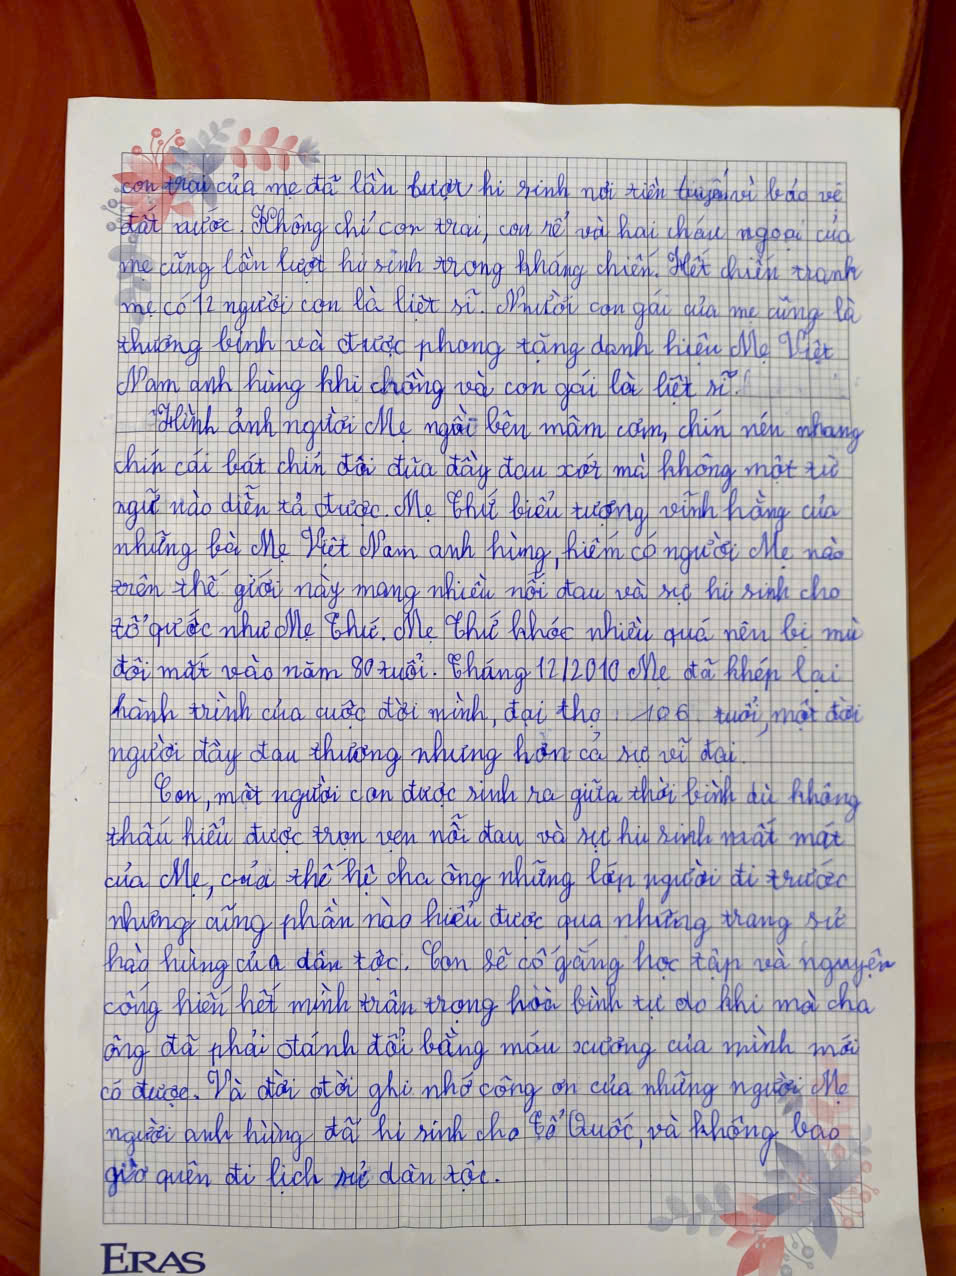 con trai của mẹ đã lần lượt hi sinh nơi tiền tuyến vì bảo vệ
đất nước. Không chỉ con trai, con rể và hai cháu ngoại của
mẹ cũng lần lượt hi sinh trong kháng chiến. Hết chiến tranh
mẹ có 12 người con là liệt sĩ. Người con gái của mẹ cũng là
thương binh và được phong tặng danh hiệu Mẹ Việt
Nam anh hùng khi chồng và con gái là liệt sĩ.
Hình ảnh người Mẹ ngồi bên mâm cơm, chín nén nhang
chín cái bát chín đôi đũa đầy đau xót mà không một từ
ngữ nào diễn tả được. Mẹ Thứ biểu tượng vĩnh hằng của
những bà Mẹ Việt Nam anh hùng, hiếm có người Mẹ nào
trên thế giới này mang nhiều nỗi đau và sự hi sinh cho
tổ quốc như Mẹ Thứ. Mẹ Thứ khóc nhiều quá nên bị mù
đôi mắt vào năm 80 tuổi. Tháng 12/2010 Mẹ đã khép lại
hành trình của cuộc đời mình, đại thọ 106 tuổi, một đời
người đầy đau thương nhưng hơn cả sự vĩ đại.
Con, một người con được sinh ra giữa thời bình dù không
thấu hiểu được trọn vẹn nỗi đau và sự hi sinh mất mát
của Mẹ, của thế hệ cha ông những lớp người đi trước
nhưng cũng phần nào hiểu được qua những trang sử
hào hùng của dân tộc. Con sẽ cố gắng học tập và nguyện
cống hiến hết mình trân trọng hoà bình tự do khi mà cha
ông đã phải đánh đổi bằng máu xương của mình mới
có được. Và đời đời ghi nhớ công ơn của những người Mẹ
người anh hùng đã hi sinh cho Tổ Quốc, và không bao
giờ quên đi lịch sử dân tộc.
ERAS